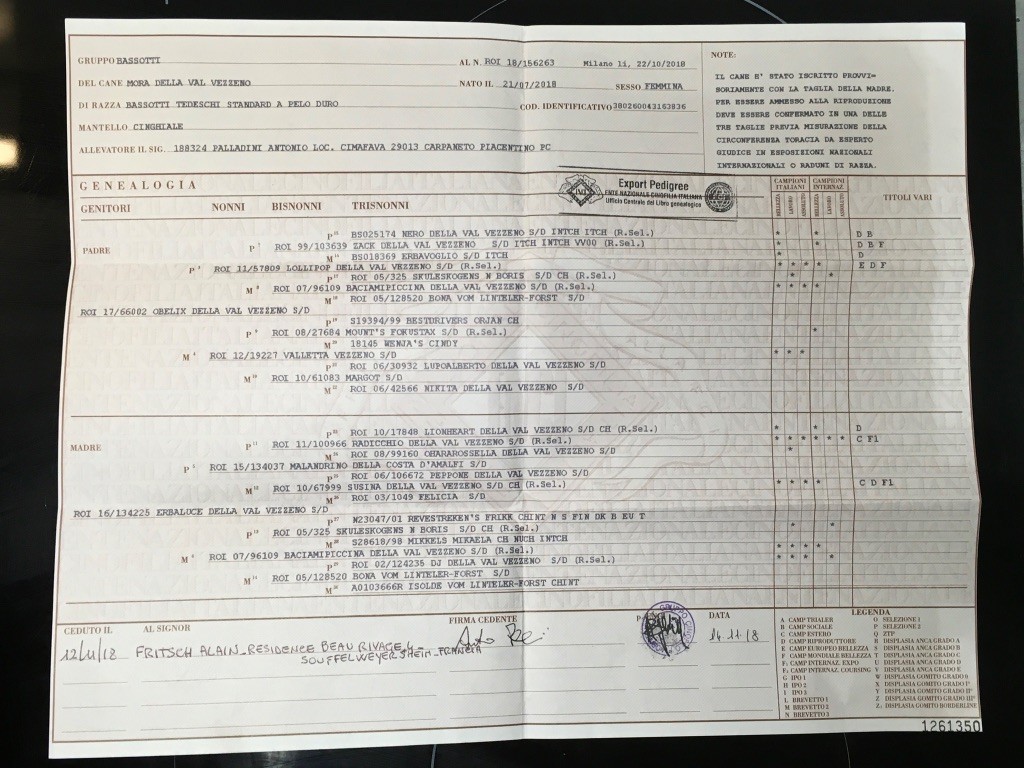 GRUPPO BASSOTTI
AL N. ROI 18/156263 Milano li, 22/10/2018
DEL CANE MORA DELLA VAL VEZZENO
NATO IL 21/07/2018 SESSO FEMMINA
DI RAZZA BASSOTTI TEDESCHI STANDARD A PELO DURO
COD. IDENTIFICATIVO 380260043163836
MANTELLO CINGHIALE
ALLEVATORE IL SIG. 188324 PALLADINI ANTONIO LOC. CIMAFAVA 29013 CARPANETO PIACENTINO PC
NOTE:
IL CANE E' STATO ISCRITTO PROVVI-
SORIAMENTE CON LA TAGLIA DELLA MADRE.
PER ESSERE AMMESSO ALLA RIPRODUZIONE
DEVE ESSERE CONFERMATO IN UNA DELLE
TRE TAGLIE PREVIA MISURAZIONE DELLA
CIRCONFERENZA TORACIA DA ESPERTO
GIUDICE IN ESPOSIZIONI NAZIONALI
INTERNAZIONALI O RADUNI DI RAZZA.
GENEALOGIA
GENITORI NONNI BISNONNI TRISNONNI
Export Pedigree
ENTE NAZIONALE CINOFILIA ITALIANA
Ufficio Centrale del Libro genealogico
CAMPIONI ITALIANI CAMPIONI INTERNAZ.
BELLEZZA LAVORO ASSOLUTO BELLEZZA LAVORO ASSOLUTO
TITOLI VARI
PADRE
P BS025174 NERO DELLA VAL VEZZENO INTCH ITCH (R.Sel.) * * D B
P ROI 99/103639 ZACK DELLA VAL VEZZENO S/D ITCH INTCH VV00 (R.Sel.) * * D B F
M BS018369 ERBAVOGLIO S/D ITCH * D
P ROI 11/57809 LOLLIPOP DELLA VAL VEZZENO S/D (R.Sel.) * * * * E D F
P ROI 05/325 SKULESKOGENS N BORIS S/D CH (R.Sel.) * *
M ROI 07/96109 BACIAMIPICCINA DELLA VAL VEZZENO S/D (R.Sel.) * * * *
M ROI 05/128520 BONA VOM LINTELER-FORST S/D
ROI 17/66002 OBELIX DELLA VAL VEZZENO S/D
P S19394/99 BESTDRIVERS ORJAN CH
P ROI 08/27684 MOUNT'S FOKUSTAX S/D (R.Sel.) *
M 18145 WENJA'S CINDY
M ROI 12/19227 VALLETTA VEZZENO S/D * * *
P ROI 06/30932 LUPOALBERTO DELLA VAL VEZZENO S/D
M ROI 10/61083 MARGOT S/D
M ROI 06/42566 NIKITA DELLA VAL VEZZENO S/D
MADRE
P ROI 10/17848 LIONHEART DELLA VAL VEZZENO S/D CH (R.Sel.) * * D
P ROI 11/100966 RADICCHIO DELLA VAL VEZZENO S/D (R.Sel.) * * * * * * C F1
M ROI 08/99160 OHARAROSSELLA DELLA VAL VEZZENO S/D *
P ROI 15/134037 MALANDRINO DELLA COSTA D'AMALFI S/D
P ROI 06/106672 PEPPONE DELLA VAL VEZZENO S/D
M ROI 10/67999 SUSINA DELLA VAL VEZZENO S/D CH (R.Sel.) * * * * C D F1
M ROI 03/1049 FELICIA S/D
ROI 16/134225 ERBALUCE DELLA VAL VEZZENO S/D
P N23047/01 REVESTREKEN'S FRIKK CHINT N S FIN DK B EU T
P ROI 05/325 SKULESKOGENS N BORIS S/D CH (R.Sel.) * *
M S28618/98 MIKKELS MIKAELA CH NUCH INTCH
M ROI 07/96109 BACIAMIPICCINA DELLA VAL VEZZENO S/D (R.Sel.) * * * *
P ROI 02/124235 DJ DELLA VAL VEZZENO S/D (R.Sel.) * * * *
M ROI 05/128520 BONA VOM LINTELER-FORST S/D
M A0103666R ISOLDE VOM LINTELER-FORST CHINT
CEDUTO IL AL SIGNOR FIRMA CEDENTE DATA
12/11/18 FRITSCH ALAIN_RESIDENCE BEAU RIVAGE 4_
SOUFFELWEYERSHEIM_FRANCIA
14 11 18
LEGENDA
A CAMP TRIALER
B CAMP SOCIALE
C CAMP ESTERO
D CAMP RIPRODUTTORE
E CAMP EUROPEO BELLEZZA
F CAMP MONDIALE BELLEZZA
F1 CAMP INTERNAZ. EXPO
F2 CAMP INTERNAZ. COURSING
G IPO 1
H IPO 2
I IPO 3
L BREVETTO 1
M BREVETTO 2
N BREVETTO 3
O SELEZIONE 1
P SELEZIONE 2
Q ZTP
R DISPLASIA ANCA GRADO A
S DISPLASIA ANCA GRADO B
T DISPLASIA ANCA GRADO C
U DISPLASIA ANCA GRADO D
V DISPLASIA ANCA GRADO E
W DISPLASIA GOMITO GRADO 0
X DISPLASIA GOMITO GRADO I°
Y DISPLASIA GOMITO GRADO II°
Z DISPLASIA GOMITO GRADO III°
Z1 DISPLASIA GOMITO BORDERLINE
1261350